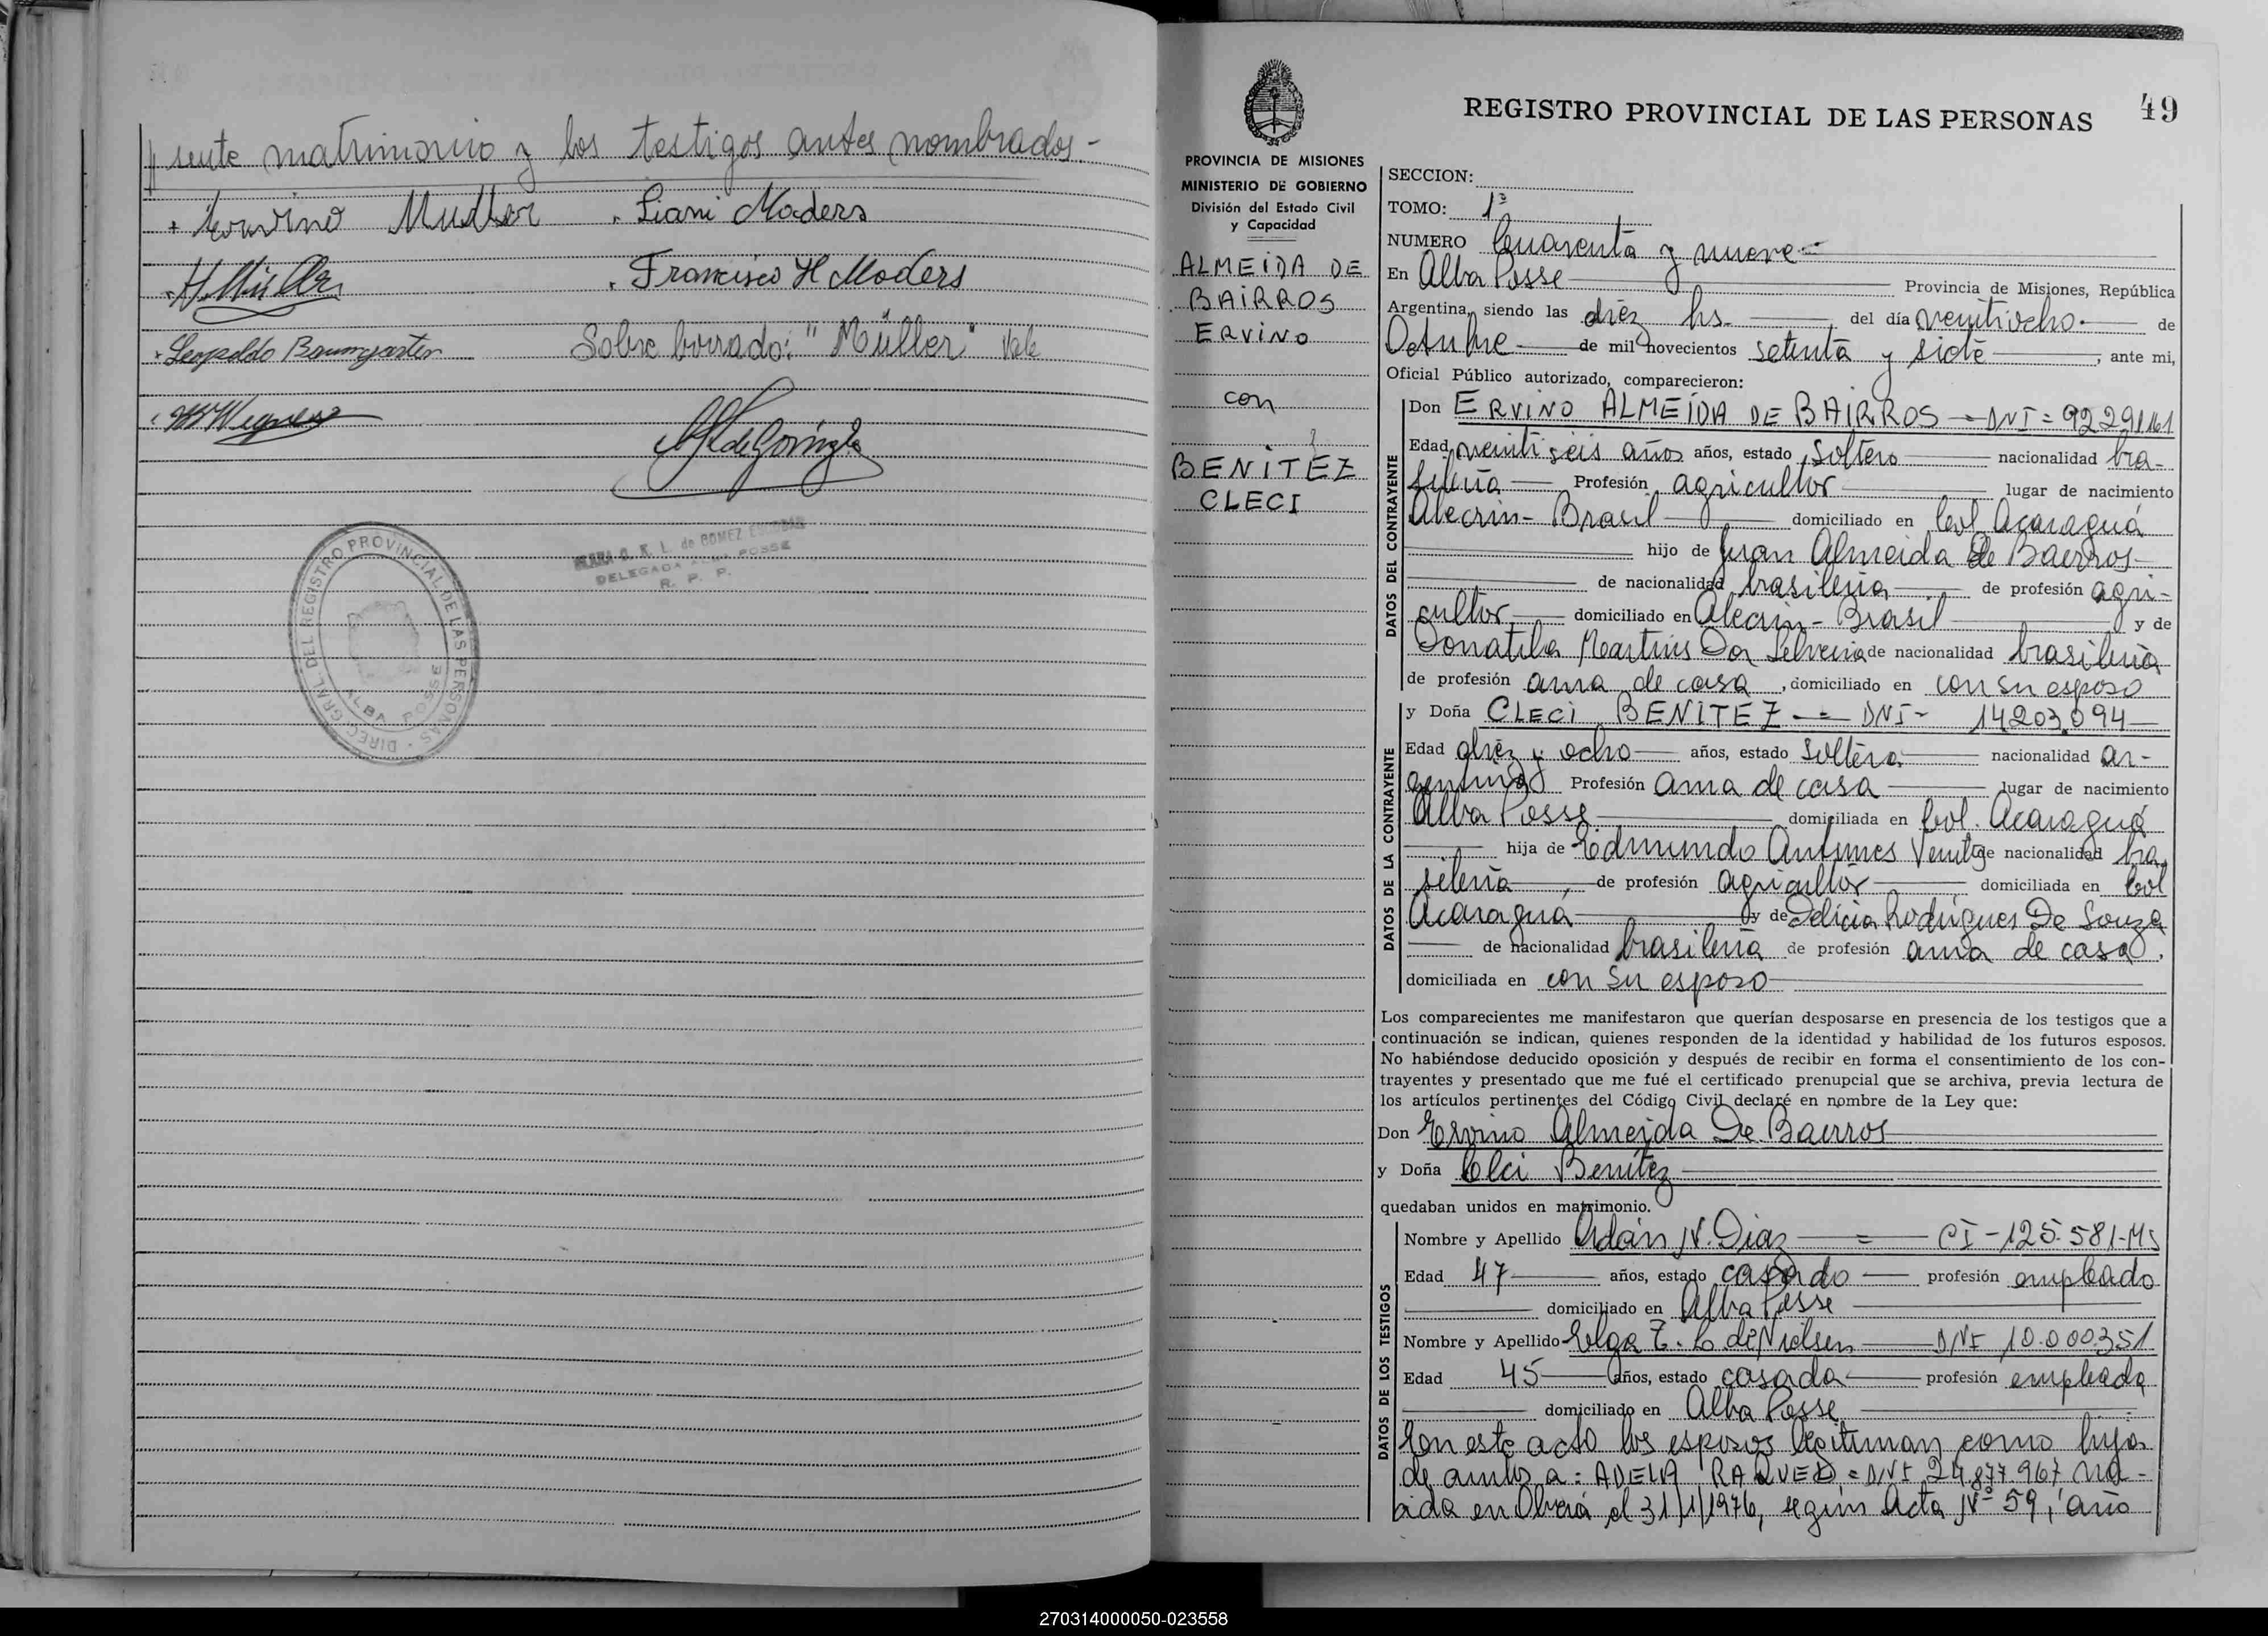 // sente matrimonio y los testigos antes nombrados.-
Liani Maders
Francisco H Maders
Leopoldo Baumgarten
Sobre borrado: "Müller" Vale
DIREC. GRAL. DEL REGISTRO PROVINCIAL DE LAS PERSONAS
ALBA POSSE
DELEGADA ALBA POSSE
R. P. P.
49
REGISTRO PROVINCIAL DE LAS PERSONAS
PROVINCIA DE MISIONES
MINISTERIO DE GOBIERNO
División del Estado Civil
y Capacidad
ALMEIDA DE
BAIRROS
ERVINO
con
BENITEZ
CLECI
SECCION:
TOMO: 1º
NUMERO Cuarenta y nueve
En Alba Posse Provincia de Misiones, República
Argentina, siendo las diez hs. del día veintiocho de
Octubre de mil novecientos setenta y siete, ante mi,
Oficial Público autorizado, comparecieron:
DATOS DEL CONTRAYENTE
Don ERVINO ALMEIDA DE BAIRROS = DNI = 92291161
Edad veinti seis años años, estado soltero nacionalidad bra-
sileña Profesión agricultor lugar de nacimiento
Alecrin - Brasil domiciliado en Col Acaraguá
hijo de Juan Almeida De Bairros
de nacionalidad brasileña de profesión agri-
cultor domiciliado en Alecrin - Brasil y de
Donatila Martins Da Silveira de nacionalidad brasileña
de profesión ama de casa, domiciliado en con su esposo
DATOS DE LA CONTRAYENTE
y Doña CLECI BENITEZ - DNI - 14203.094
Edad diez y ocho años, estado soltera nacionalidad ar-
gentina Profesión ama de casa lugar de nacimiento
Alba Posse domiciliada en Col. Acaraguá
hija de Edmundo Antunes de nacionalidad bra-
sileña, de profesión agricultor domiciliada en Col
Acaraguá y de Delicia Rodrigues De Souza
de nacionalidad brasileña de profesión ama de casa.
domiciliada en con su esposo
Los comparecientes me manifestaron que querían desposarse en presencia de los testigos que a
continuación se indican, quienes responden de la identidad y habilidad de los futuros esposos.
No habiéndose deducido oposición y después de recibir en forma el consentimiento de los con-
trayentes y presentado que me fué el certificado prenupcial que se archiva, previa lectura de
los artículos pertinentes del Código Civil declaré en nombre de la Ley que:
Don Ervino Almeida De Bairros
y Doña Cleci Benítez
quedaban unidos en matrimonio.
DATOS DE LOS TESTIGOS
Nombre y Apellido Adán N. Diaz = CI - 125.581-MS
Edad 47 años, estado casado profesión empleado
domiciliado en Alba Posse
Nombre y Apellido Elga T. L de Nielsen DNI 10.000.351
Edad 45 años, estado casada profesión empleada
domiciliado en Alba Posse
En este acto los esposos legitiman como hija
de ambos a: ADELA RAQUEL = DNI 24.877.967 na-
cida en Oberá el 31/1/1976, según Acta Nº 59, año
270314000050-023558